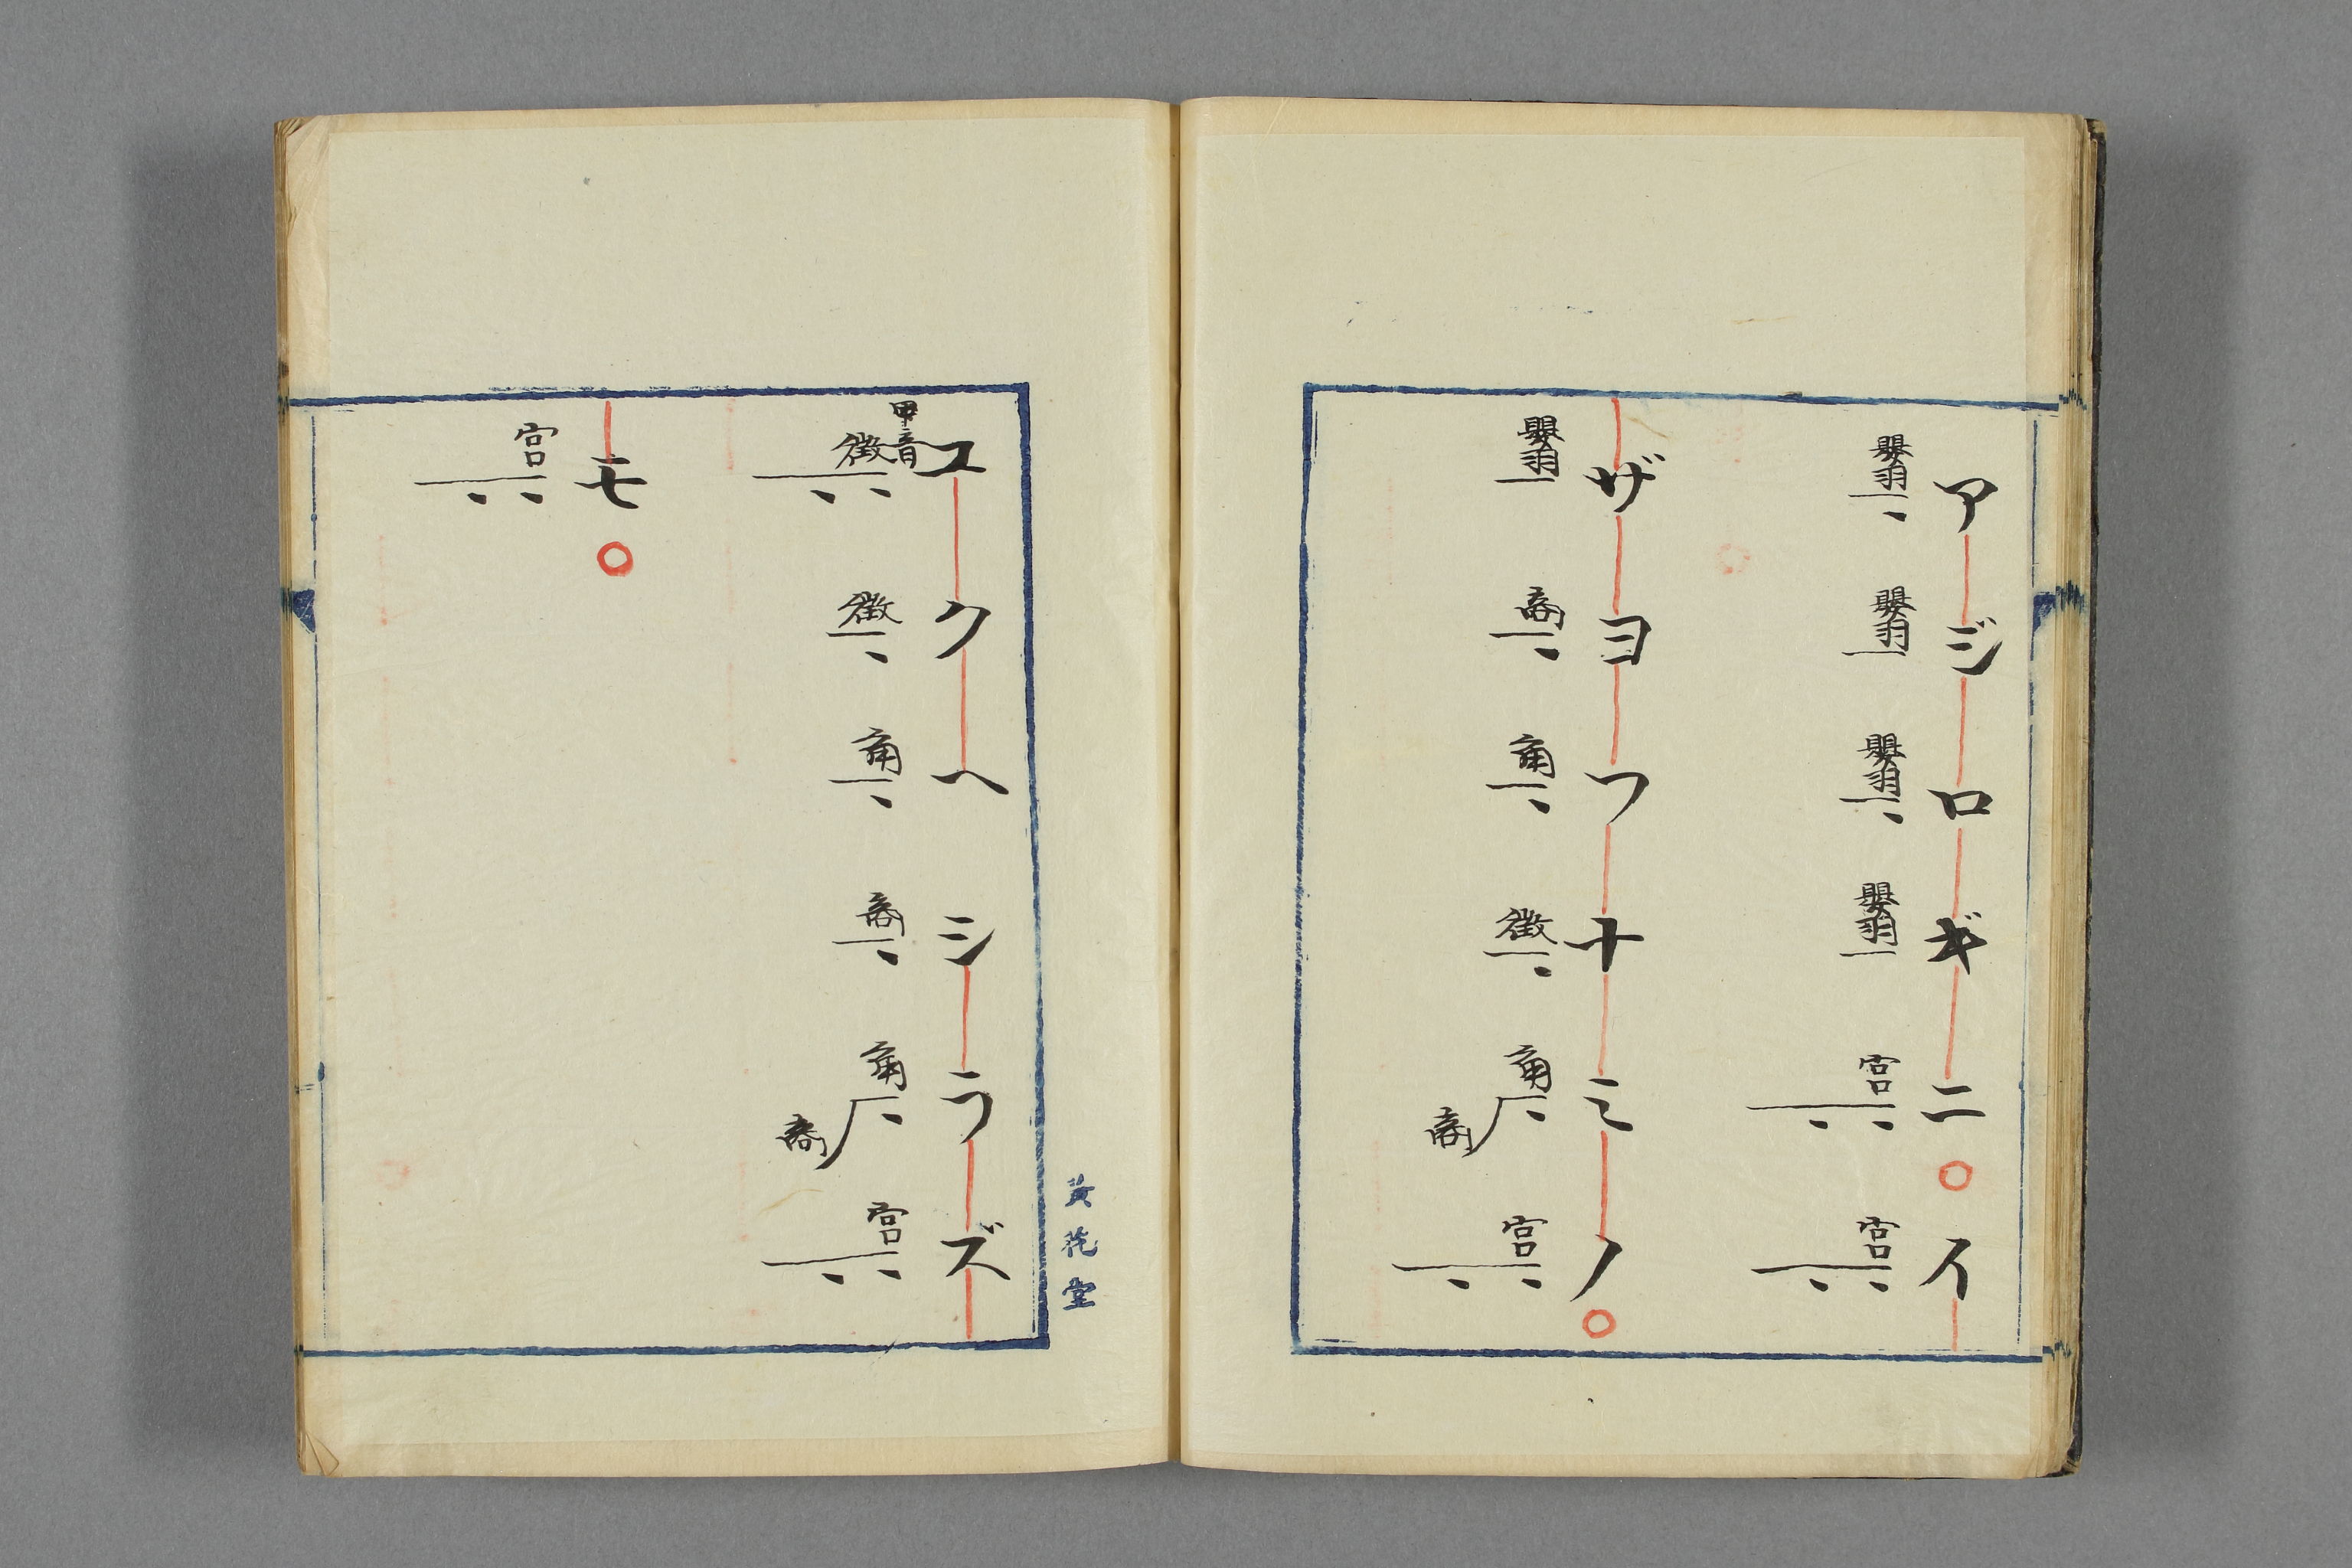 アジロギニ○イ
嬰羽 嬰羽 嬰羽 嬰羽 宮 宮
ザヨフナミノ○
嬰羽 商 角 徴 角 商 宮
ユクヘシラズ
甲音
徴 徴 角 商 角 商 宮
モ○
宮